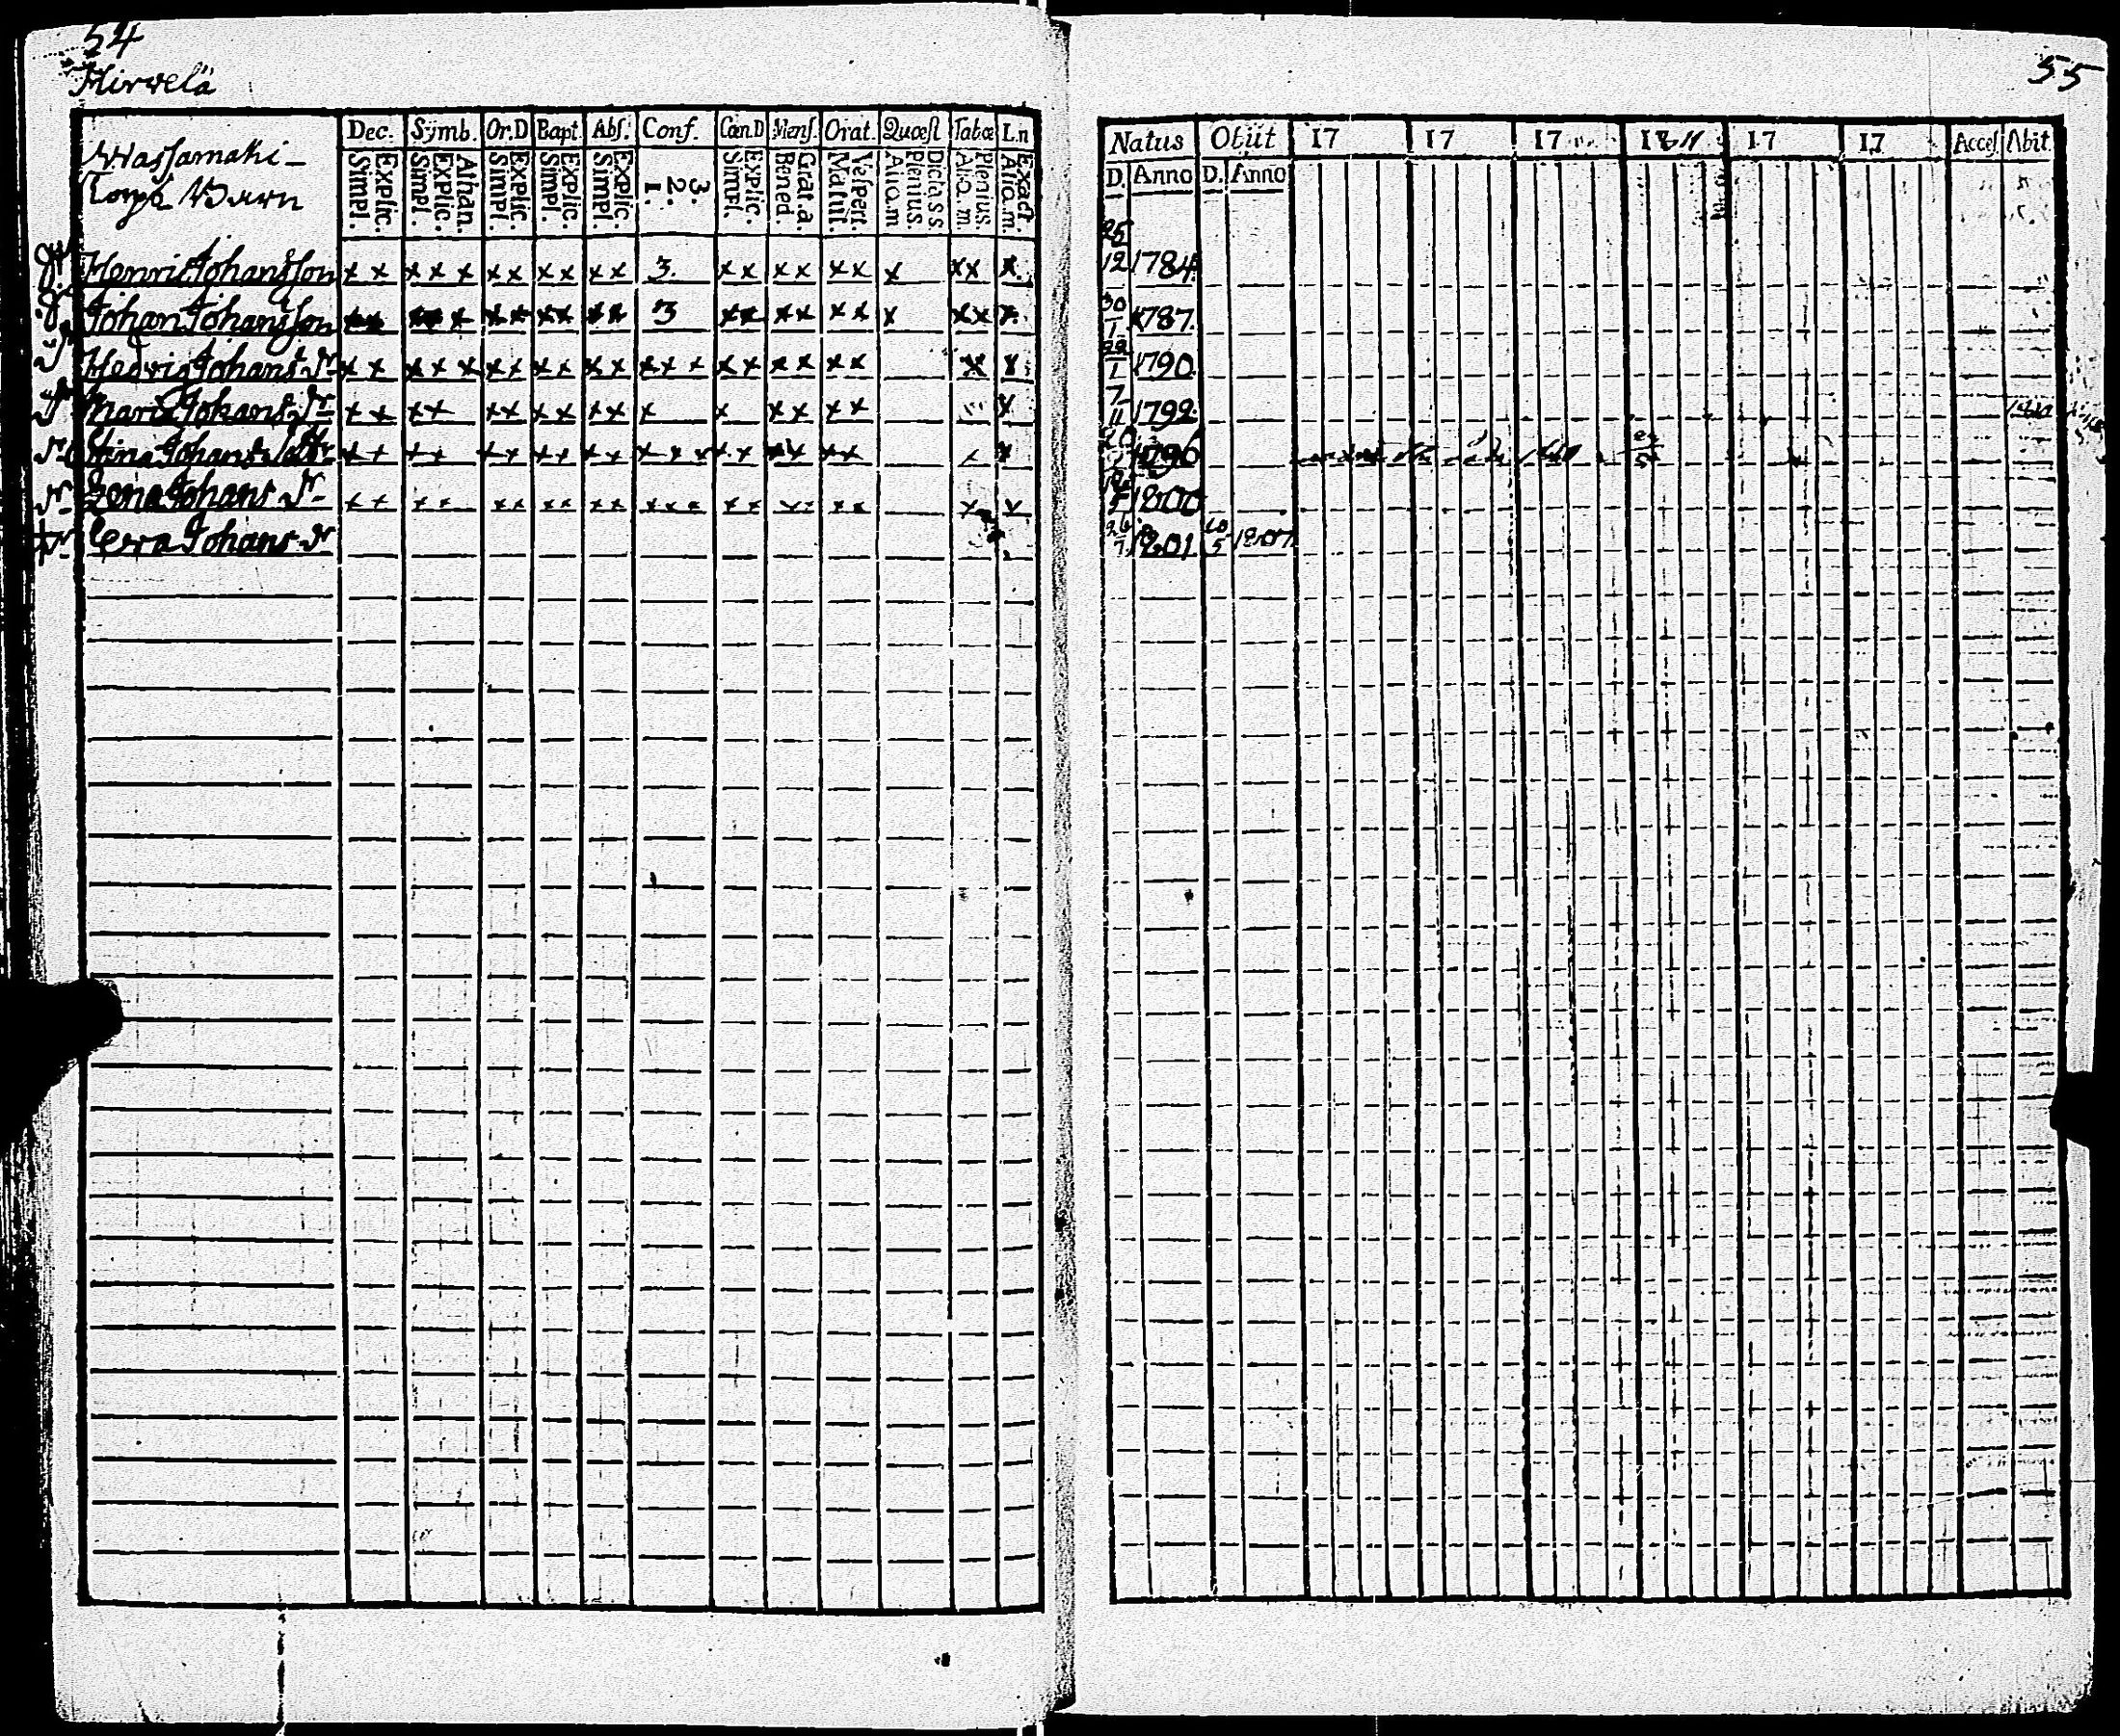 54
Hirvelä
55
Dec. Symb. Or.D Bapt. Abſ. Conf. Cœn.D Menſ. Orat. Quæſt Tabæ L.n
Explic. Simpl. Athan. Explic. Simpl. Explic. Simpl. Explic. Simpl. Explic. Simpl. 3. 2. 1. Explic. Simpl. Grat.a. Bened. Veſpert. Matut. Plenius. Aliq.m Plenius. Aliq.m. Exact. Aliq.m.
Torp Barn
Natus Obiit 17 17 17 1811 17 17 Acceſ. Abit.
D. Anno D. Anno
Henric Johansſon x x x x x x x x x x x 3. x x x x x x x x x x 25/12 1784.
Johan Johansſon x x x x x x x x x 3 x x x x x x x x x x 30/1 1787.
Hedvig Johans dr x x x x x x x x x x x x x x x x x x x x x x 1790.
Maria Johans dr x x x x x x x x x x x x x x x x x 7/11 1792.
Stina Johans x x x x x x x x x x x x x x x x x x x x x 1796
Lena Johans dr x x x x x x x x x x x x x x x x x x x x x 1800
Ewa Johans dr 26/7 1801 10/5 1807.